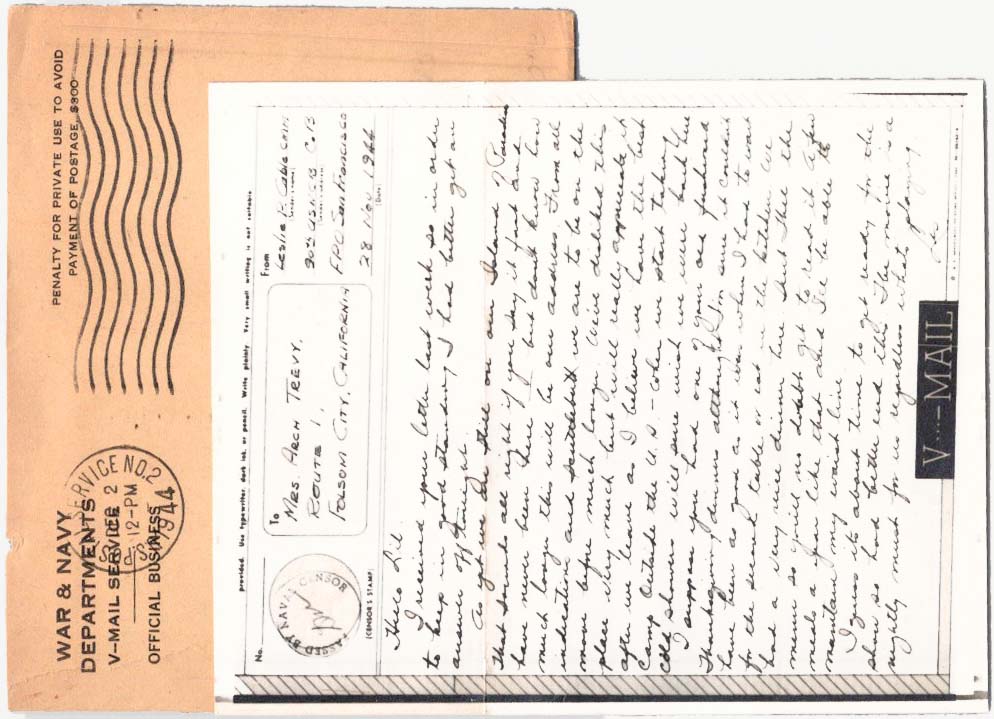 WAR & NAVY
DEPARTMENTS
V-MAIL SERVICE
OFFICIAL BUSINESS
SERVICE NO. 2
2
12-PM
1944
PENALTY FOR PRIVATE USE TO AVOID
PAYMENT OF POSTAGE, $300
provided. Use typewriter, dark ink, or pencil. Write plainly. Very small writing is not suitable.
No.
PASSED BY NAVAL CENSOR
(CENSOR'S STAMP)
To
MRS. ARCH TREVY,
ROUTE 1,
FOLSOM CITY, CALIFORNIA
From
LESLIE P.
90th U.S.N.C.B.
FPO San Francisco
28 Nov 1944
(Date)
Hello Sil
I received your letter last week so in order
to keep in good standing I had better get an
answer off tonight.
As yet are still on our Island Paradise
That sounds all right if you say it fast and
have never been here but dont know how
much longer this will be our address. From all
indication and scuttlebutt we are to be on the
move before much longer. Weive disliked this
place very much but will really appreciate it
after we leave as I believe we have the best
Camp Outside the U.S. - when we start taking
cold showers will sure wish we were back here
I suppose you had one of your old fashioned
Thanksgiving dinners although I'm sure it couldnt
have been as good as it was when I had to wait
for the second table or eat in the kitchen. We
had a very nice dinner here but I left the
menu so you'll no doubt get to read it. A few
meals a year like that and I'll be able to
maintain my waist line
I guess its about time to get ready for the
show so had better end this. The movie is a
nightly must for us regardless whats playing
Les
V···—MAIL